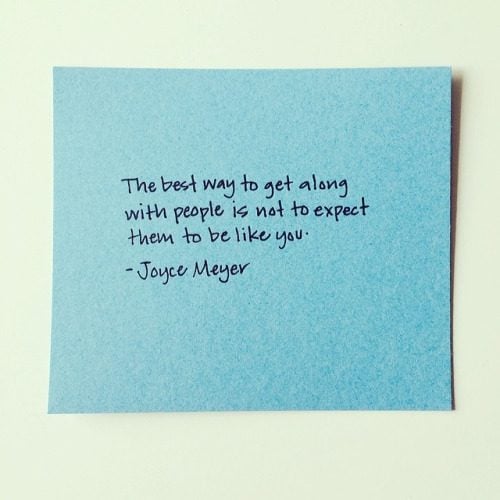 The best way to get along
with people is not to expect
them to be like you.
- Joyce Meyer